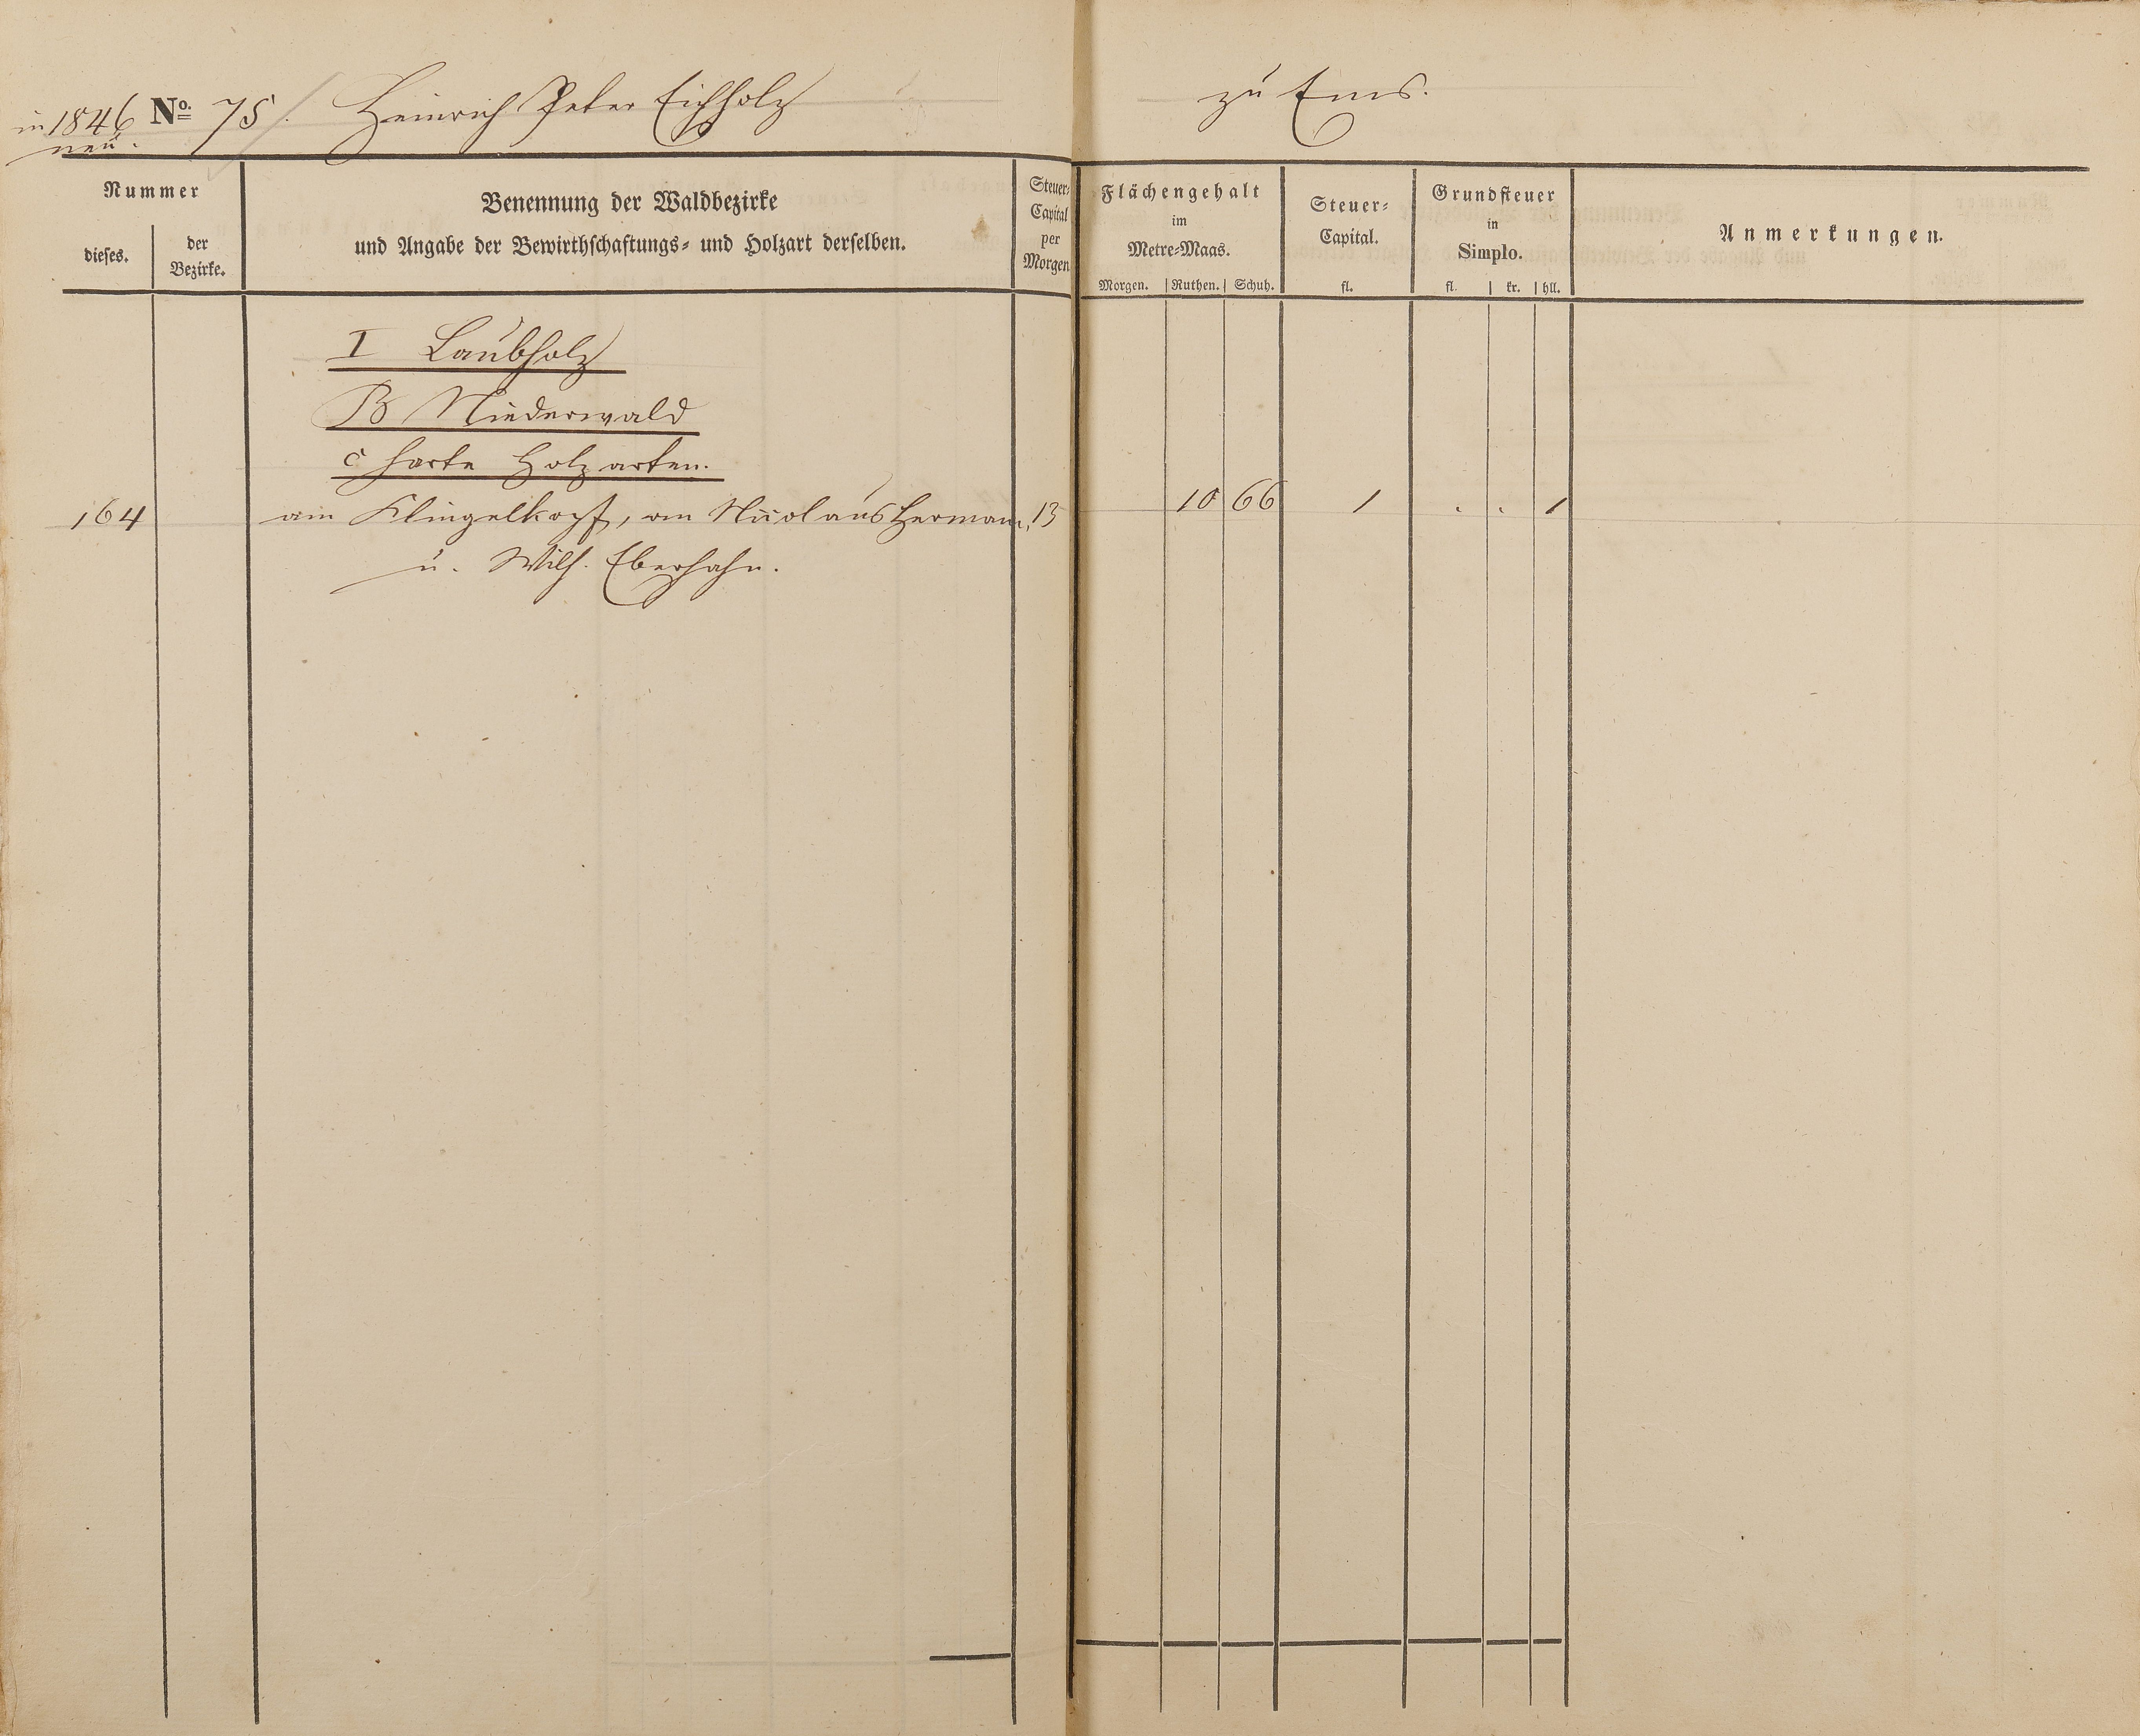 in 1846 No. 75. Heinrich Peter Eichholz zu Ems.
neu.
Nummer
dieses.
der
Bezirke.
Benennung der Waldbezirke
und Angabe der Bewirthschaftungs- und Holzart derselben.
Steuer-
Capital
per
Morgen
Flächengehalt
im
Metre-Maas.
Morgen. Ruthen. Schuh.
Steuer-
Capital.
fl.
Grundsteuer
in
Simplo.
fl. kr. hll.
Anmerkungen.
I Laubholz
B Niederwald
c harte Holzarten.
164 am Klingelkopf, an Nicolaus Hermann, 13 10 66 1 . . 1
u. Wilh. Eberhahn.